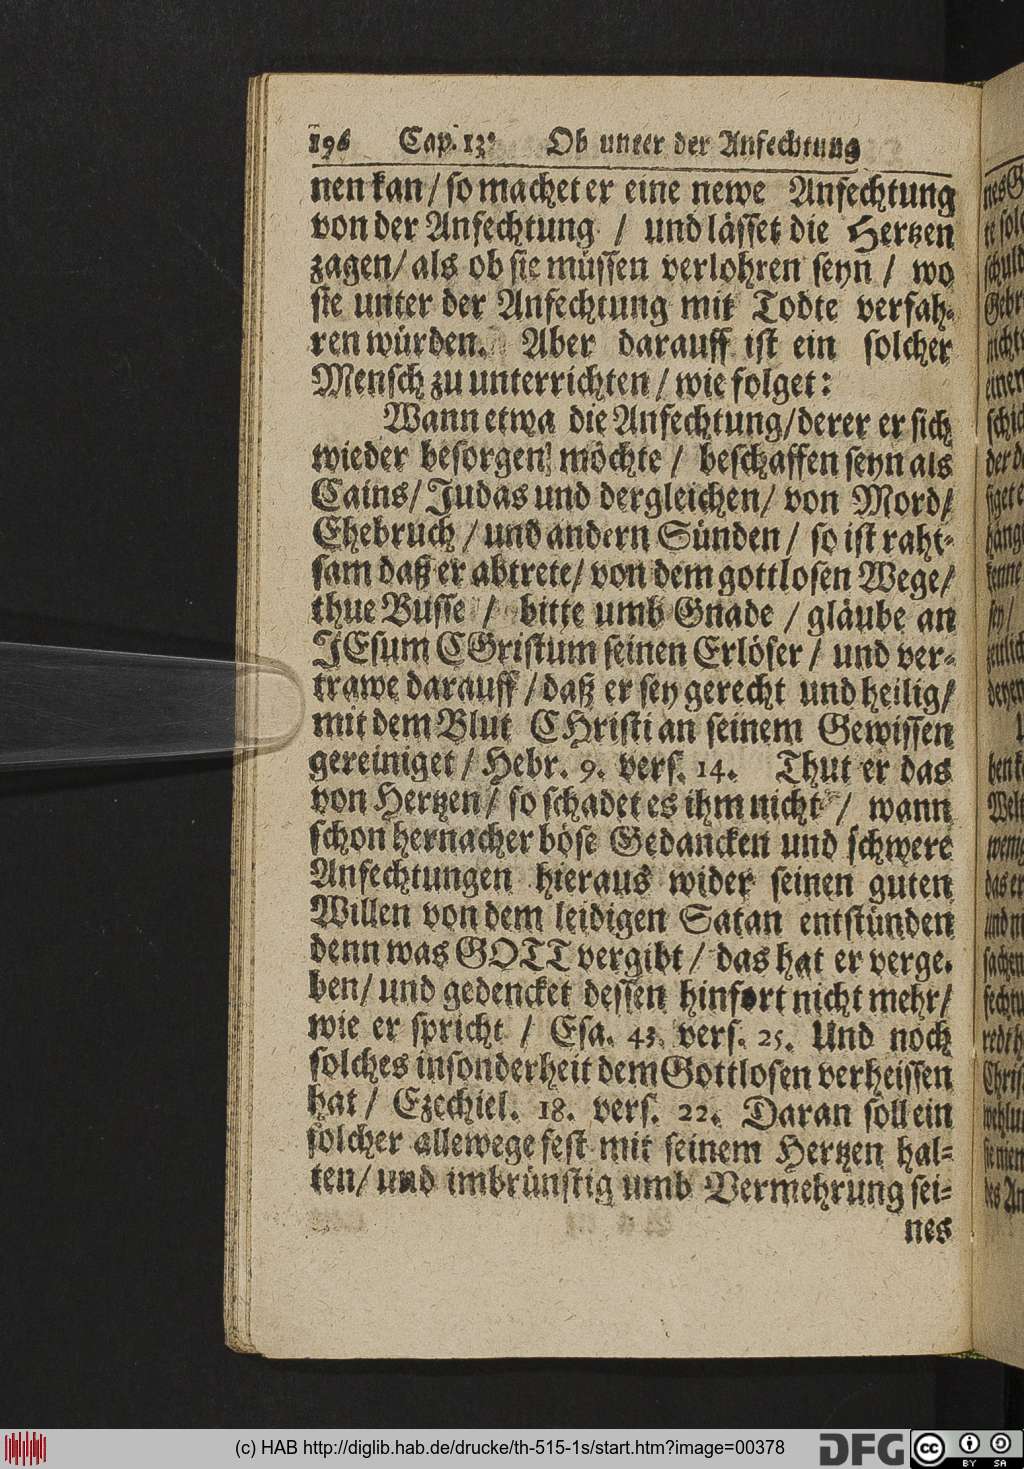 196 Cap. 13. Ob unter der Anfechtung
nen kan / so machet er eine newe Anfechtung
von der Anfechtung / und lässet die Hertzen
zagen / als ob sie müssen verlohren seyn / wo
sie unter der Anfechtung mit Todte verfah-
ren würden. Aber darauff ist ein solcher
Mensch zu unterrichten / wie folget:
Wann etwa die Anfechtung / derer er sich
wieder besorgen möchte / beschaffen seyn als
Cains / Judas und dergleichen / von Mord /
Ehebruch / und andern Sünden / so ist raht-
sam daß er abtrete / von dem gottlosen Wege /
thue Busse / bitte umb Gnade / gläube an
JEsum CGristum seinen Erlöser / und ver-
trawe darauff / daß er sey gerecht und heilig /
mit dem Blut CHristi an seinem Gewissen
gereiniget / Hebr. 9. vers. 14. Thut er das
von Hertzen / so schadet es ihm nicht / wann
schon hernacher böse Gedancken und schwere
Anfechtungen hieraus wider seinen guten
Willen von dem leidigen Satan entstünden
denn was GOTT vergibt / das hat er verge-
ben / und gedencket dessen hinfort nicht mehr /
wie er spricht / Esa. 43. vers. 25. Und noch
solches insonderheit dem Gottlosen verheissen
hat / Ezechiel. 18. vers. 22. Daran soll ein
solcher allewege fest mit seinem Hertzen hal-
ten / und imbrünstig umb Vermehrung sei-
nes
(c) HAB http://diglib.hab.de/drucke/th-515-1s/start.htm?image=00378
DFG
cc BY SA